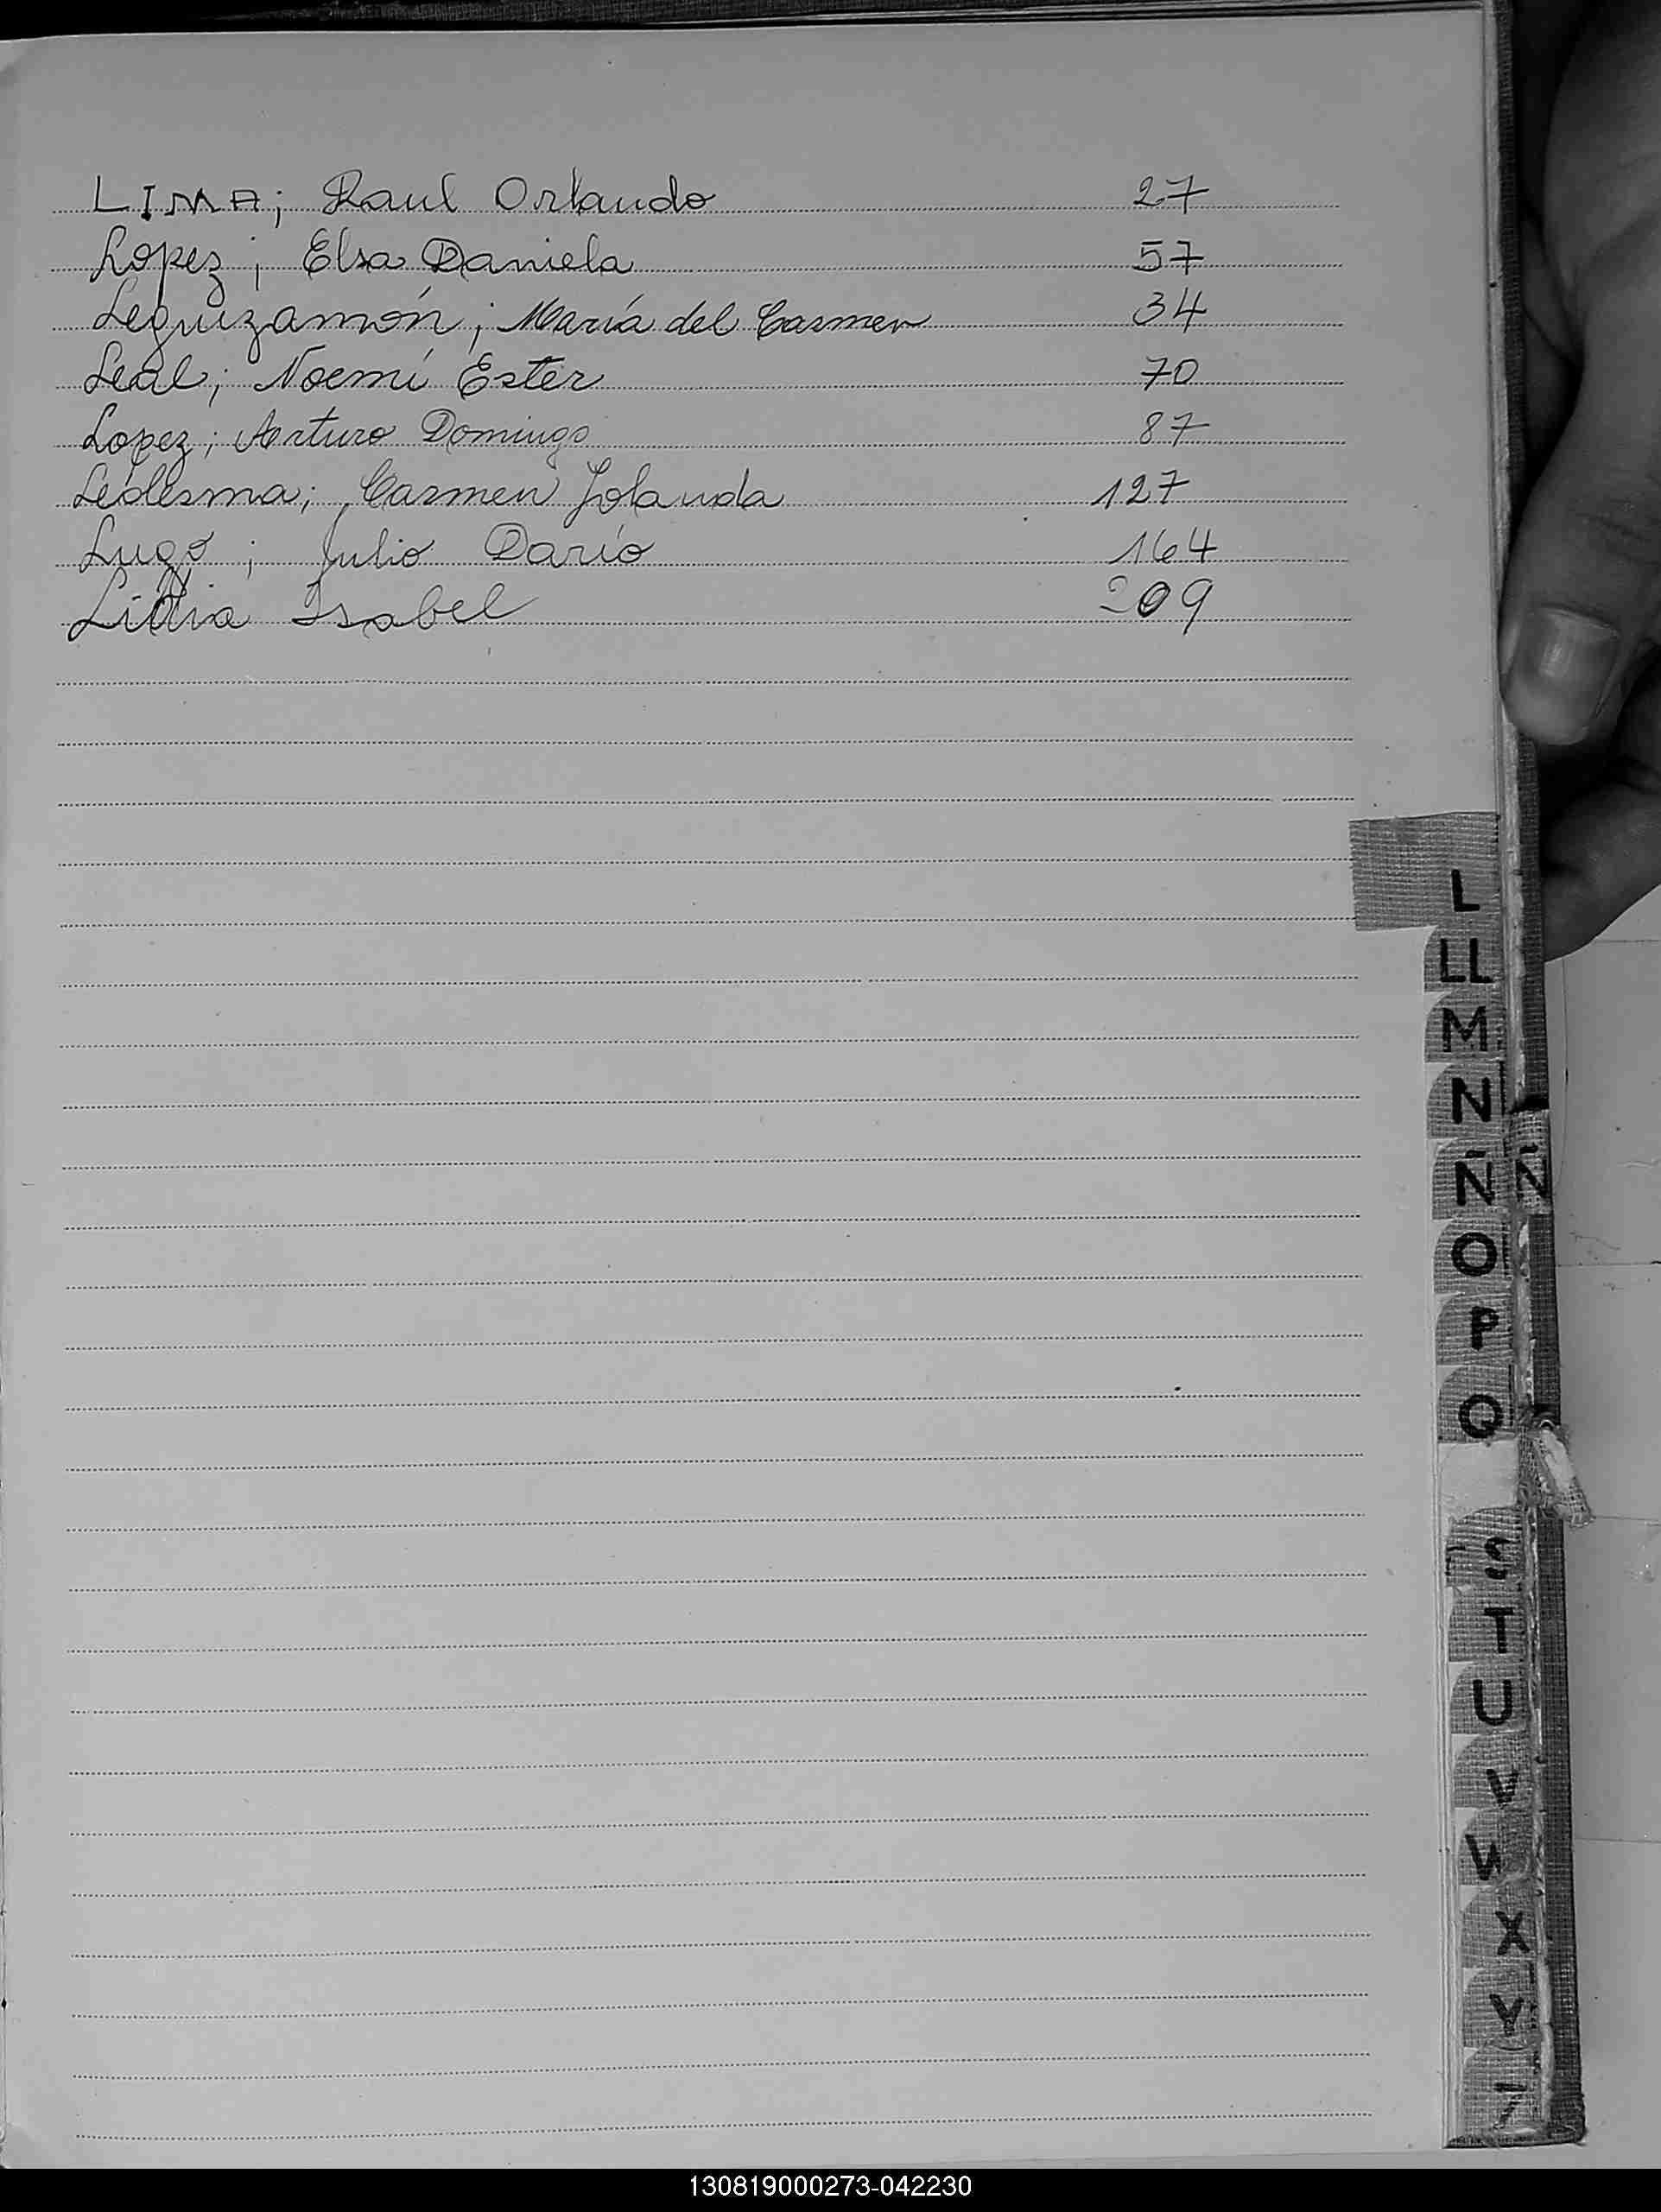 LIMA; Raul Orlando 27
Lopez; Elsa Daniela 57
Leguizamón; María del Carmen 34
Leal; Noemí Ester 70
Lopez; Arturo Domingo 87
Ledesma; Carmen Jolanda 127
Lugo; Julio Darío 164
Lidia Isabel 209
L
LL
M
N
Ñ Ñ
O
P
Q
S
T
U
V
W
X
Y
130819000273-042230